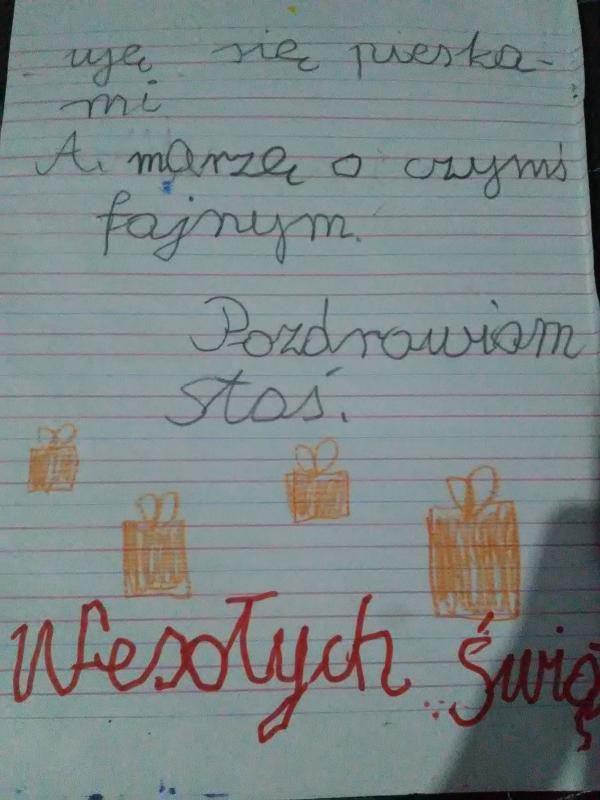 uję się pieska-
mi
A. marzę o czymś
fajnym.
Pozdrawiam
Staś.
Wesołych Świą